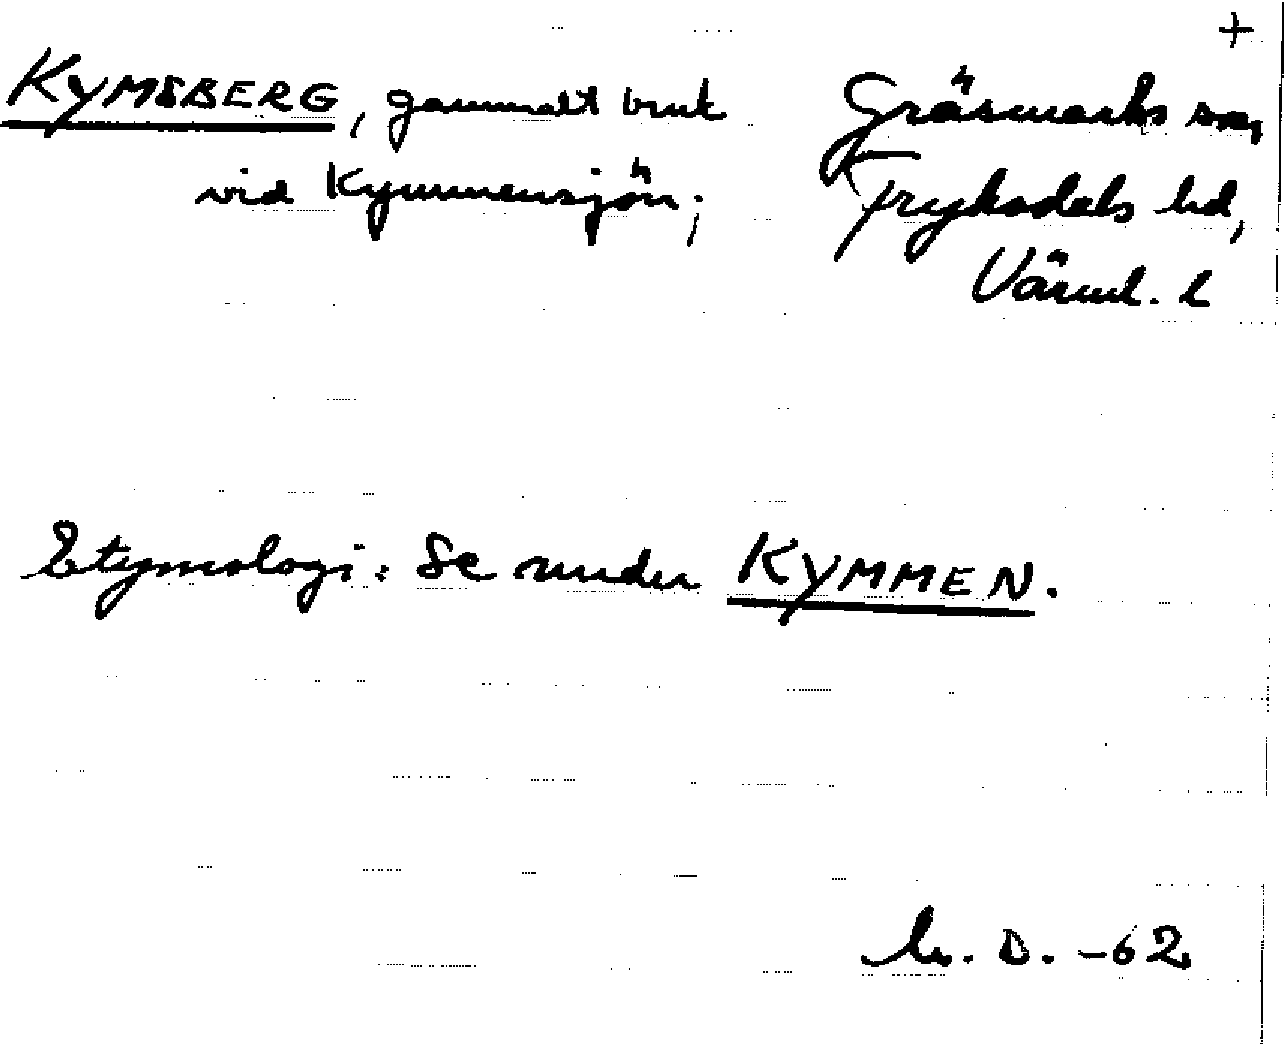 +
KYMSBERG, gammalt bruk
vid Kymmensjön;
Gräsmarks sn,
Fryksdals hd,
Värml. l
Etymologi: Se under KYMMEN.
D. -62